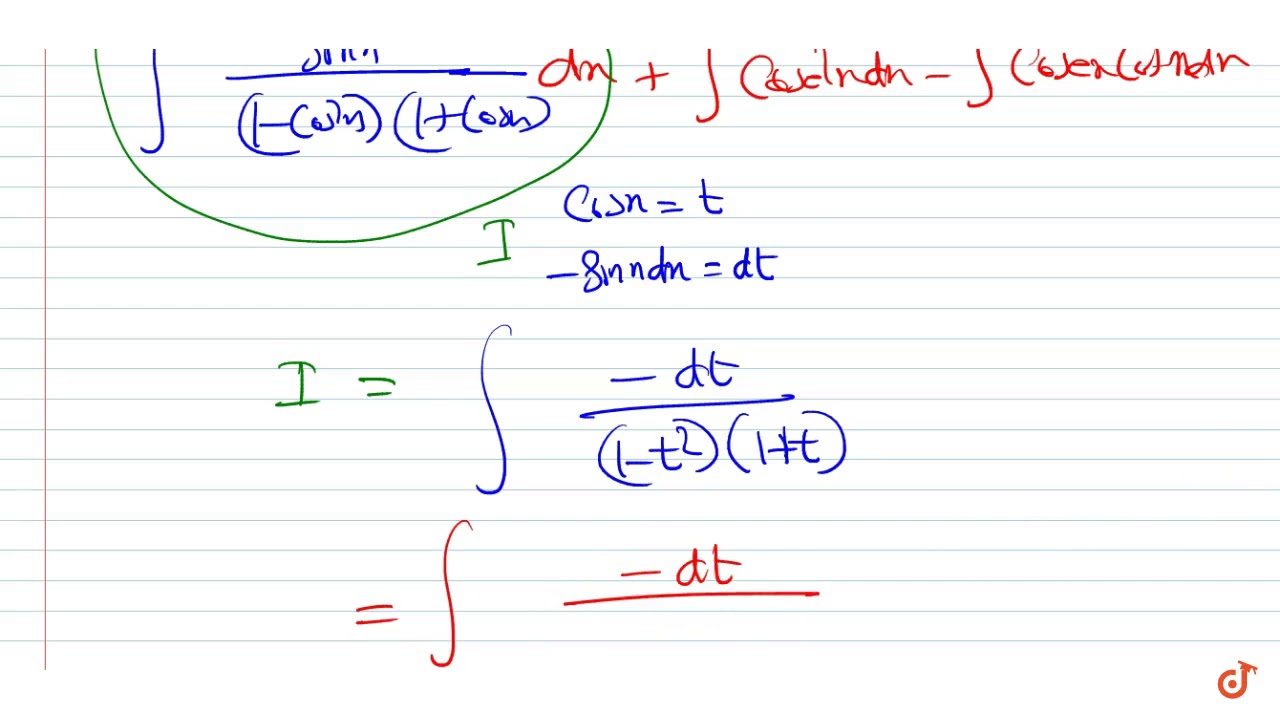 ∫ sinx / (1-cos²x)(1+cosx) dx + ∫ cosec²x dx - ∫ cosecx cotx dx
cosx = t
I
-sinx dx = dt
I = ∫ -dt / (1-t²)(1+t)
= ∫ -dt